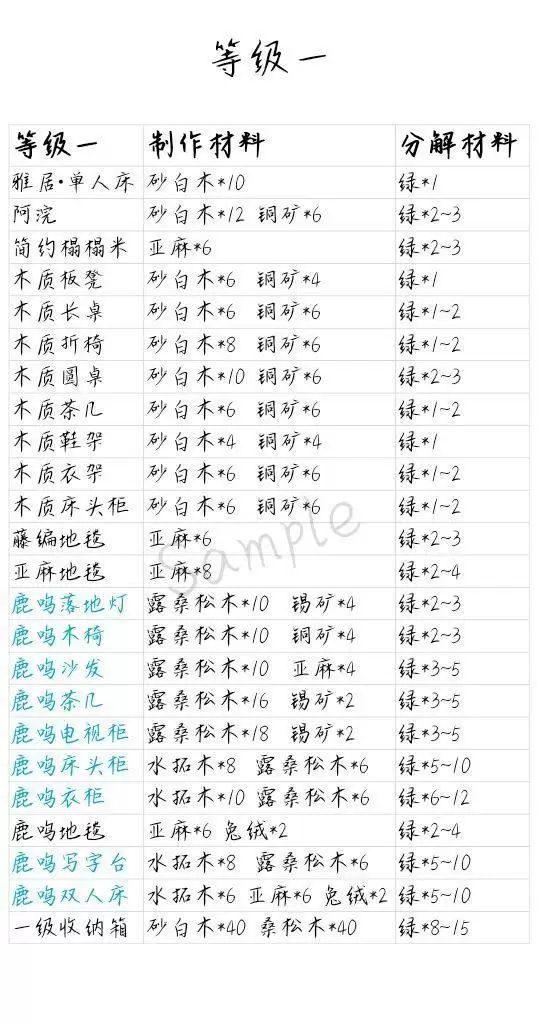 等级一
等级一 制作材料 分解材料
雅居·单人床 砂白木*10 绿*1
阿浣 砂白木*12 铜矿*6 绿*2~3
简约榻榻米 亚麻*6 绿*2~3
木质板凳 砂白木*6 铜矿*4 绿*1
木质长桌 砂白木*6 铜矿*6 绿*1~2
木质折椅 砂白木*8 铜矿*6 绿*1~2
木质圆桌 砂白木*10 铜矿*6 绿*2~3
木质茶几 砂白木*6 铜矿*6 绿*1~2
木质鞋架 砂白木*4 铜矿*4 绿*1
木质衣架 砂白木*6 铜矿*6 绿*1~2
木质床头柜 砂白木*6 铜矿*6 绿*1~2
藤编地毯 亚麻*6 绿*2~3
亚麻地毯 亚麻*8 绿*2~4
鹿鸣落地灯 露桑松木*10 锡矿*4 绿*2~3
鹿鸣木椅 露桑松木*10 铜矿*4 绿*2~3
鹿鸣沙发 露桑松木*10 亚麻*4 绿*3~5
鹿鸣茶几 露桑松木*16 锡矿*2 绿*3~5
鹿鸣电视柜 露桑松木*18 锡矿*2 绿*3~5
鹿鸣床头柜 水拓木*8 露桑松木*6 绿*5~10
鹿鸣衣柜 水拓木*10 露桑松木*6 绿*6~12
鹿鸣地毯 亚麻*6 兔绒*2 绿*2~4
鹿鸣写字台 水拓木*8 露桑松木*6 绿*5~10
鹿鸣双人床 水拓木*6 亚麻*6 兔绒*2 绿*5~10
一级收纳箱 砂白木*40 桑松木*40 绿*8~15
Sample